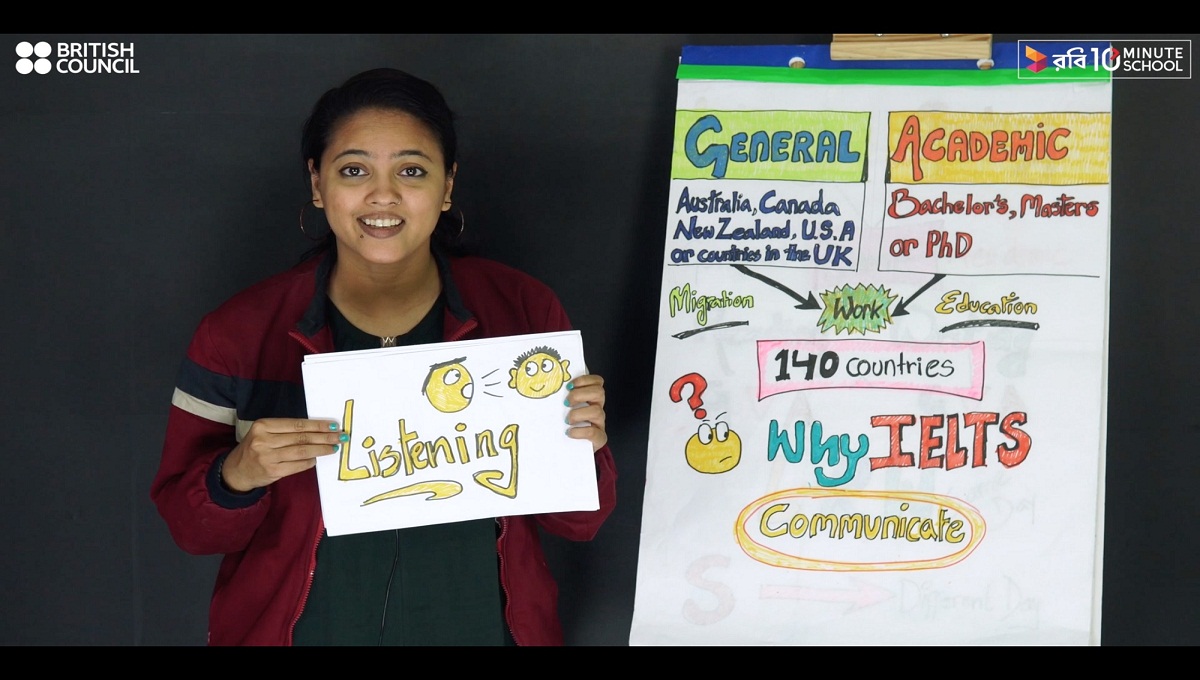 BRITISH
COUNCIL
রবি 10 MINUTE
SCHOOL
GENERAL
Australia, Canada
New Zealand, U.S.A
or countries in the UK
ACADEMIC
Bachelor's, Masters
or PhD
Migration
Work
Education
140 countries
?
Why IELTS
Communicate
S
Different Day
Listening